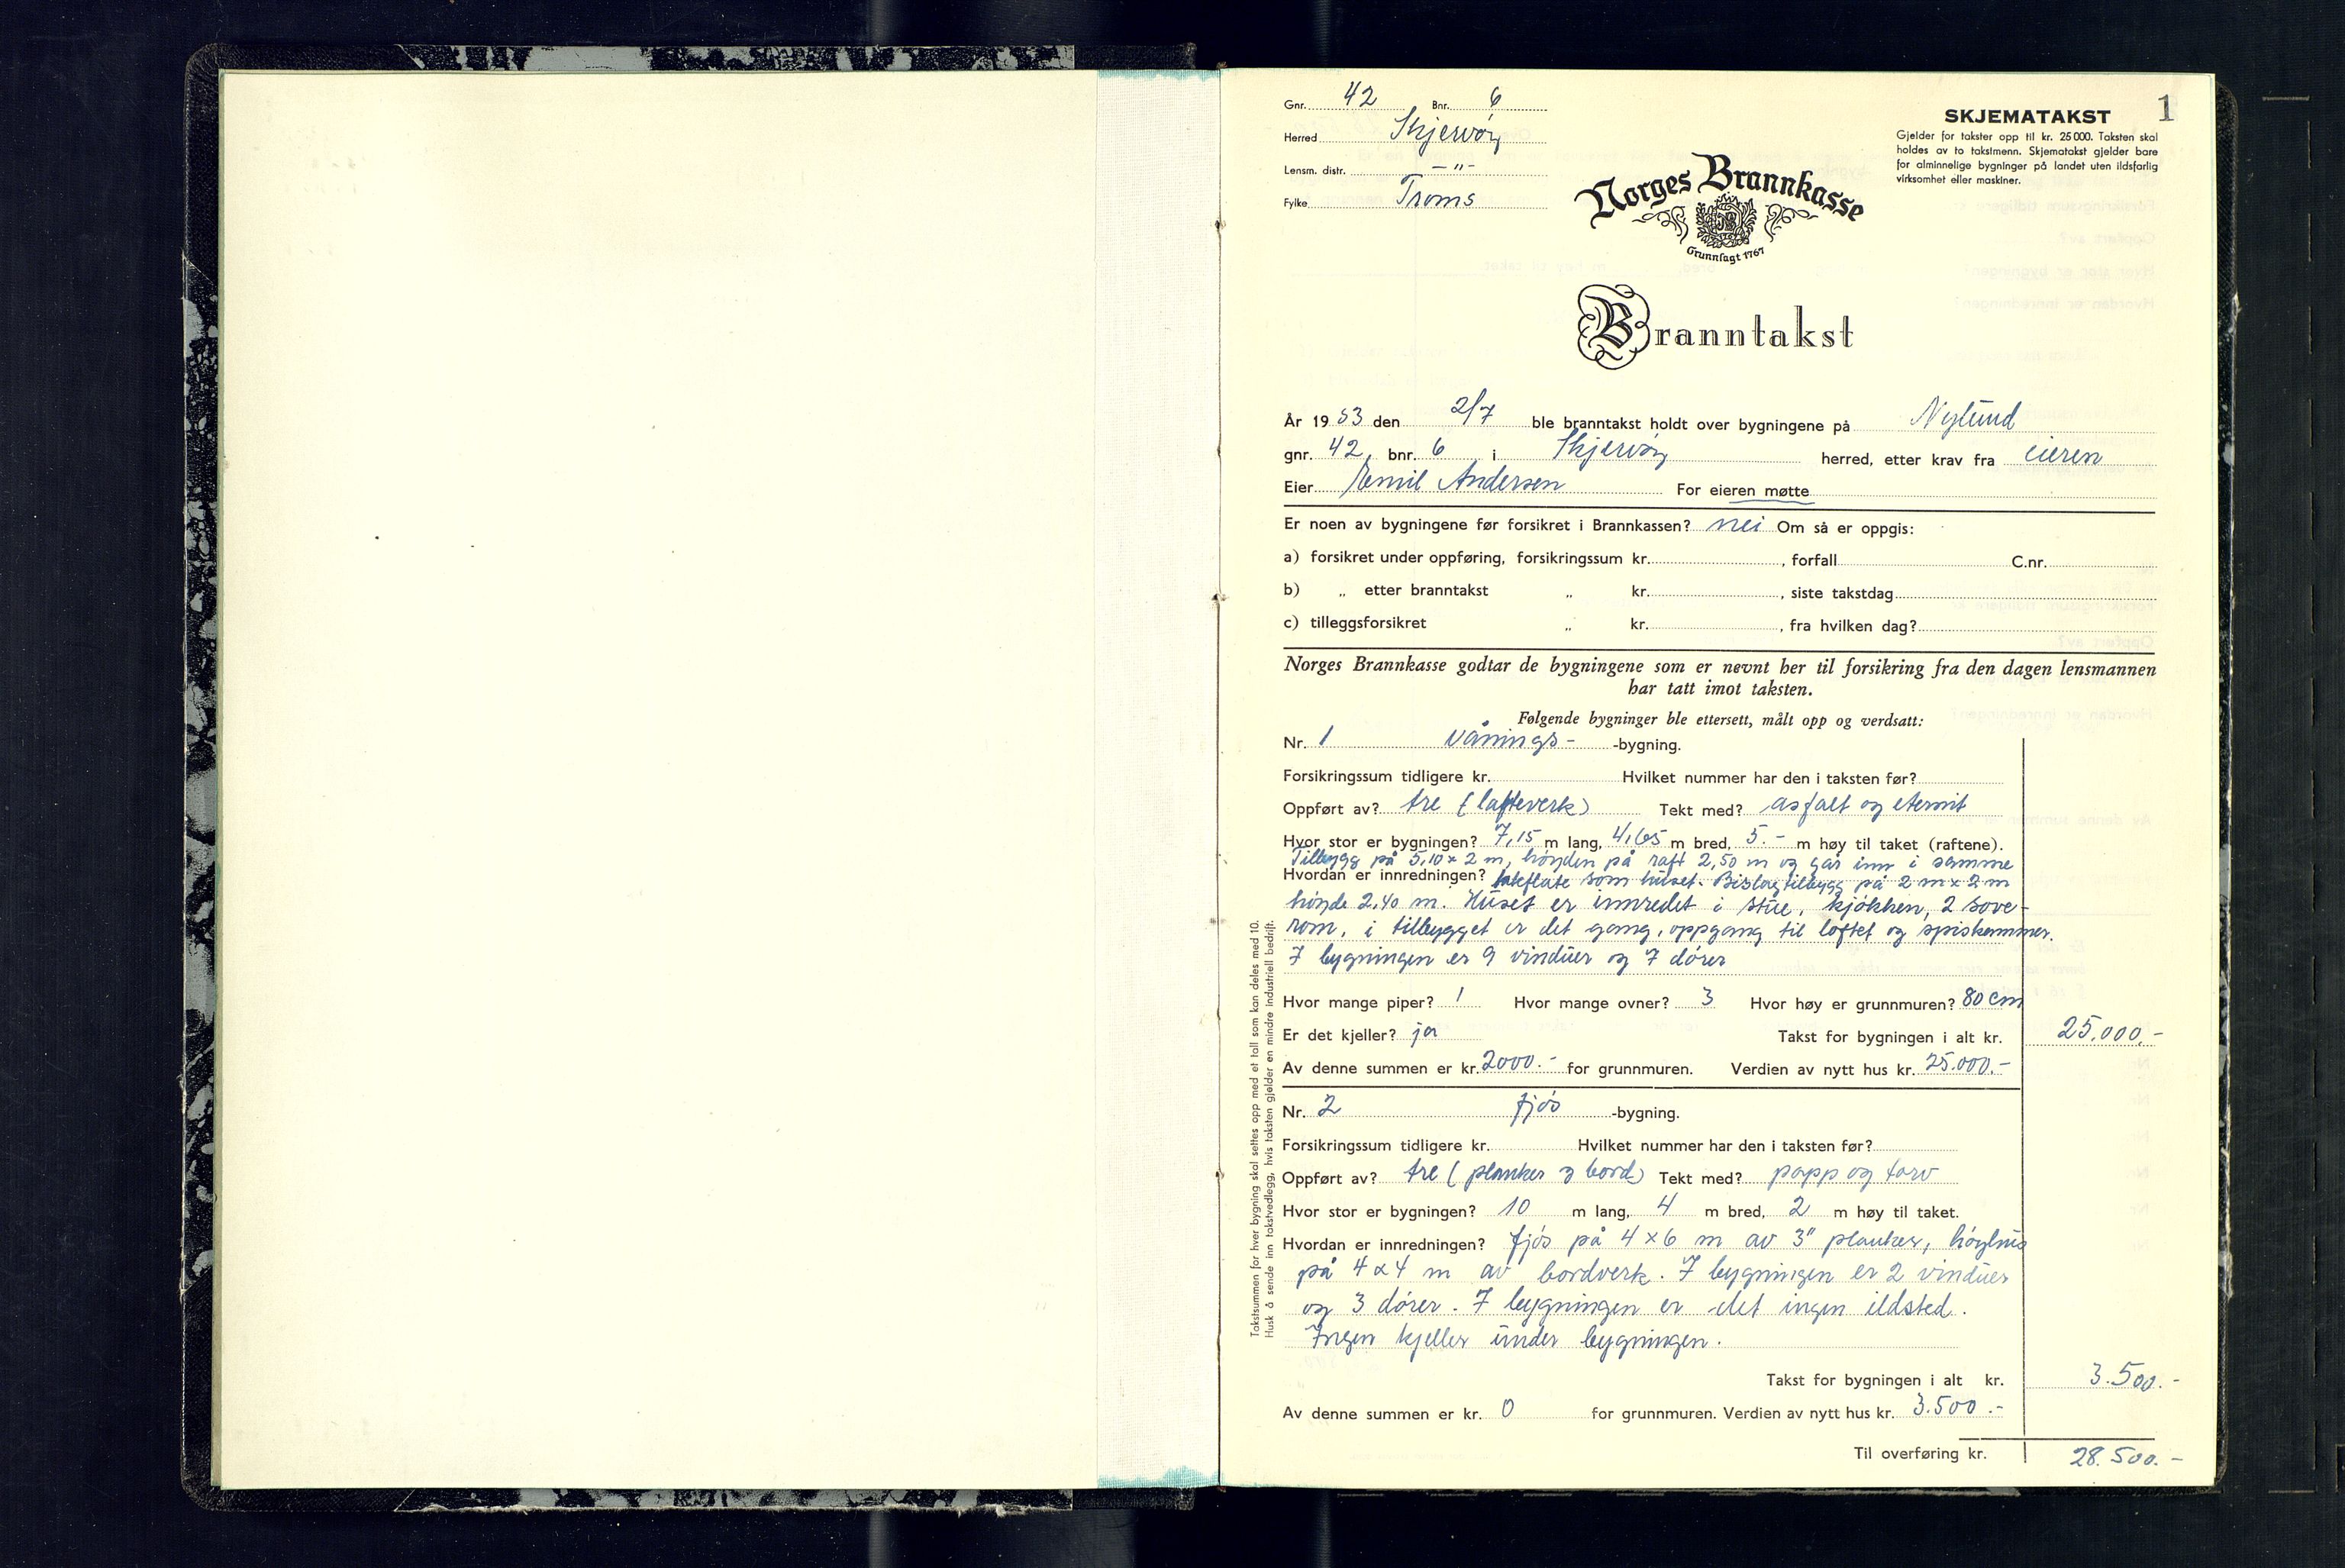 Gnr. 42 Bnr. 6
Herred Skjervøy
Lensm. distr. —"—
Fylke Troms
SKJEMATAKST 1
Gjelder for takster opp til kr. 25 000. Taksten skal
holdes av to takstmenn. Skjematakst gjelder bare
for alminnelige bygninger på landet uten ildsfarlig
virksomhet eller maskiner.
Norges Brannkasse
Grunnlagt 1767
Branntakst
År 1953 den 2/7 ble branntakst holdt over bygningene på Nylund
gnr. 42, bnr. 6 i Skjervøy herred, etter krav fra eieren
Eier Emil Andersen For eieren møtte
Er noen av bygningene før forsikret i Brannkassen? nei Om så er oppgis:
a) forsikret under oppføring, forsikringssum kr. , forfall C.nr.
b) „ etter branntakst „ kr. , siste takstdag
c) tilleggsforsikret „ kr. , fra hvilken dag?
Norges Brannkasse godtar de bygningene som er nevnt her til forsikring fra den dagen lensmannen
har tatt imot taksten.
Følgende bygninger ble ettersett, målt opp og verdsatt:
Nr. 1 Vånings- -bygning.
Forsikringssum tidligere kr. Hvilket nummer har den i taksten før?
Oppført av? tre (lafteverk) Tekt med? asfalt og eternit
Hvor stor er bygningen? 7,15 m lang, 4,65 m bred, 5.- m høy til taket (raftene).
Tilbygg på 5,10 x 2 m, høyden på raft 2,50 m og går inn i samme
Hvordan er innredningen? takflate som huset. Bislagtilbygg på 2 m x 2 m
høyde 2,40 m. Huset er innredet i stue, kjøkken, 2 sove-
rom, i tilbygget er det gang, oppgang til loftet og spiskammer.
I bygningen er 9 vinduer og 7 dører
Hvor mange piper? 1 Hvor mange ovner? 3 Hvor høy er grunnmuren? 80 cm
Er det kjeller? ja Takst for bygningen i alt kr. 25.000.-
Av denne summen er kr. 2000.- for grunnmuren. Verdien av nytt hus kr. 25.000.-
Nr. 2 fjøs -bygning.
Forsikringssum tidligere kr. Hvilket nummer har den i taksten før?
Oppført av? tre (planker og bord) Tekt med? papp og torv
Hvor stor er bygningen? 10 m lang, 4 m bred, 2 m høy til taket.
Hvordan er innredningen? fjøs på 4 x 6 m av 3" planker, høyhus
på 4 x 4 m av bordverk. I bygningen er 2 vinduer
og 3 dører. I bygningen er det ingen ildsted.
Ingen kjeller under bygningen.
Takst for bygningen i alt kr. 3.500.-
Av denne summen er kr. 0 for grunnmuren. Verdien av nytt hus kr. 3.500.-
Til overføring kr. 28.500.-
Takstsummen for hver bygning skal settes opp med et tall som kan deles med 10.
Husk å sende inn takstvedlegg, hvis taksten gjelder en mindre industriell bedrift.